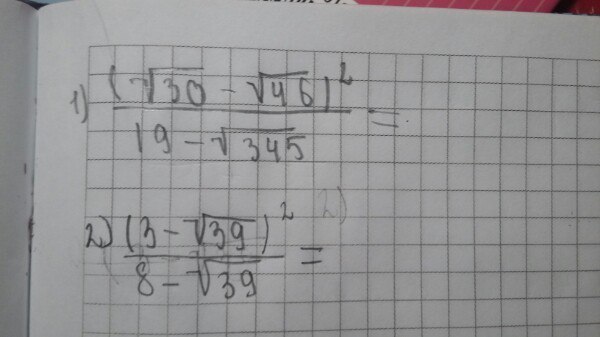 1) (√30 - √46)²
19 - √345 =
2) (3 - √39)² 2)
8 - √39 =